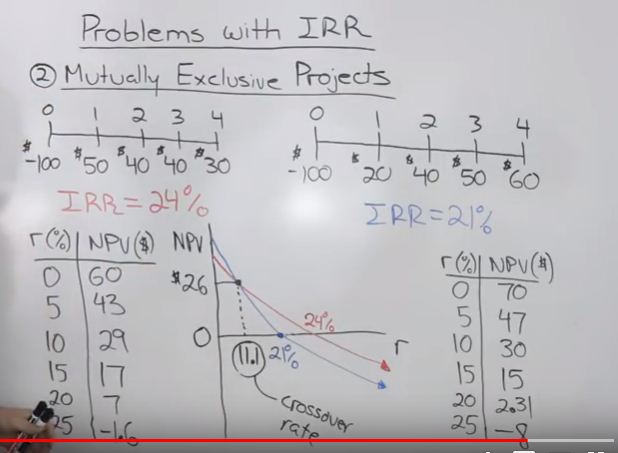 Problems with IRR
② Mutually Exclusive Projects
0 1 2 3 4
$-100 $50 $40 $40 $30
IRR = 24%
0 1 2 3 4
$-100 $20 $40 $50 $60
IRR = 21%
r(%) NPV($)
0 60
5 43
10 29
15 17
20 7
25 -1.6
NPV
$26
0
24%
r
11.1
21%
crossover
rate
r(%) NPV($)
0 70
5 47
10 30
15 15
20 2.31
25 -8